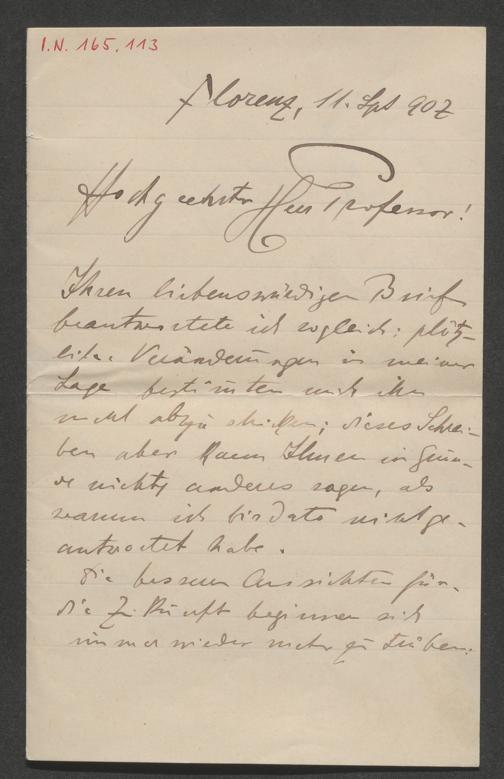 I.N. 165.113
Florenz, 11. Spt 907
Hochgeehrter Herr Professor!
Ihren liebenswürdigen Brief
beantwortete ich sogleich: plötz-
liche Veränderungen in meiner
Lage bestimten mich ihn
nicht abzuschicken; dieses Schrei-
ben aber kann Ihnen im Grun-
de nichts anderes sagen, als
warum ich bis Dato nicht ge-
antwortet habe.
Die bessern Aussichten für
die Zukunft beginnen sich
immer wieder mehr zu trüben: